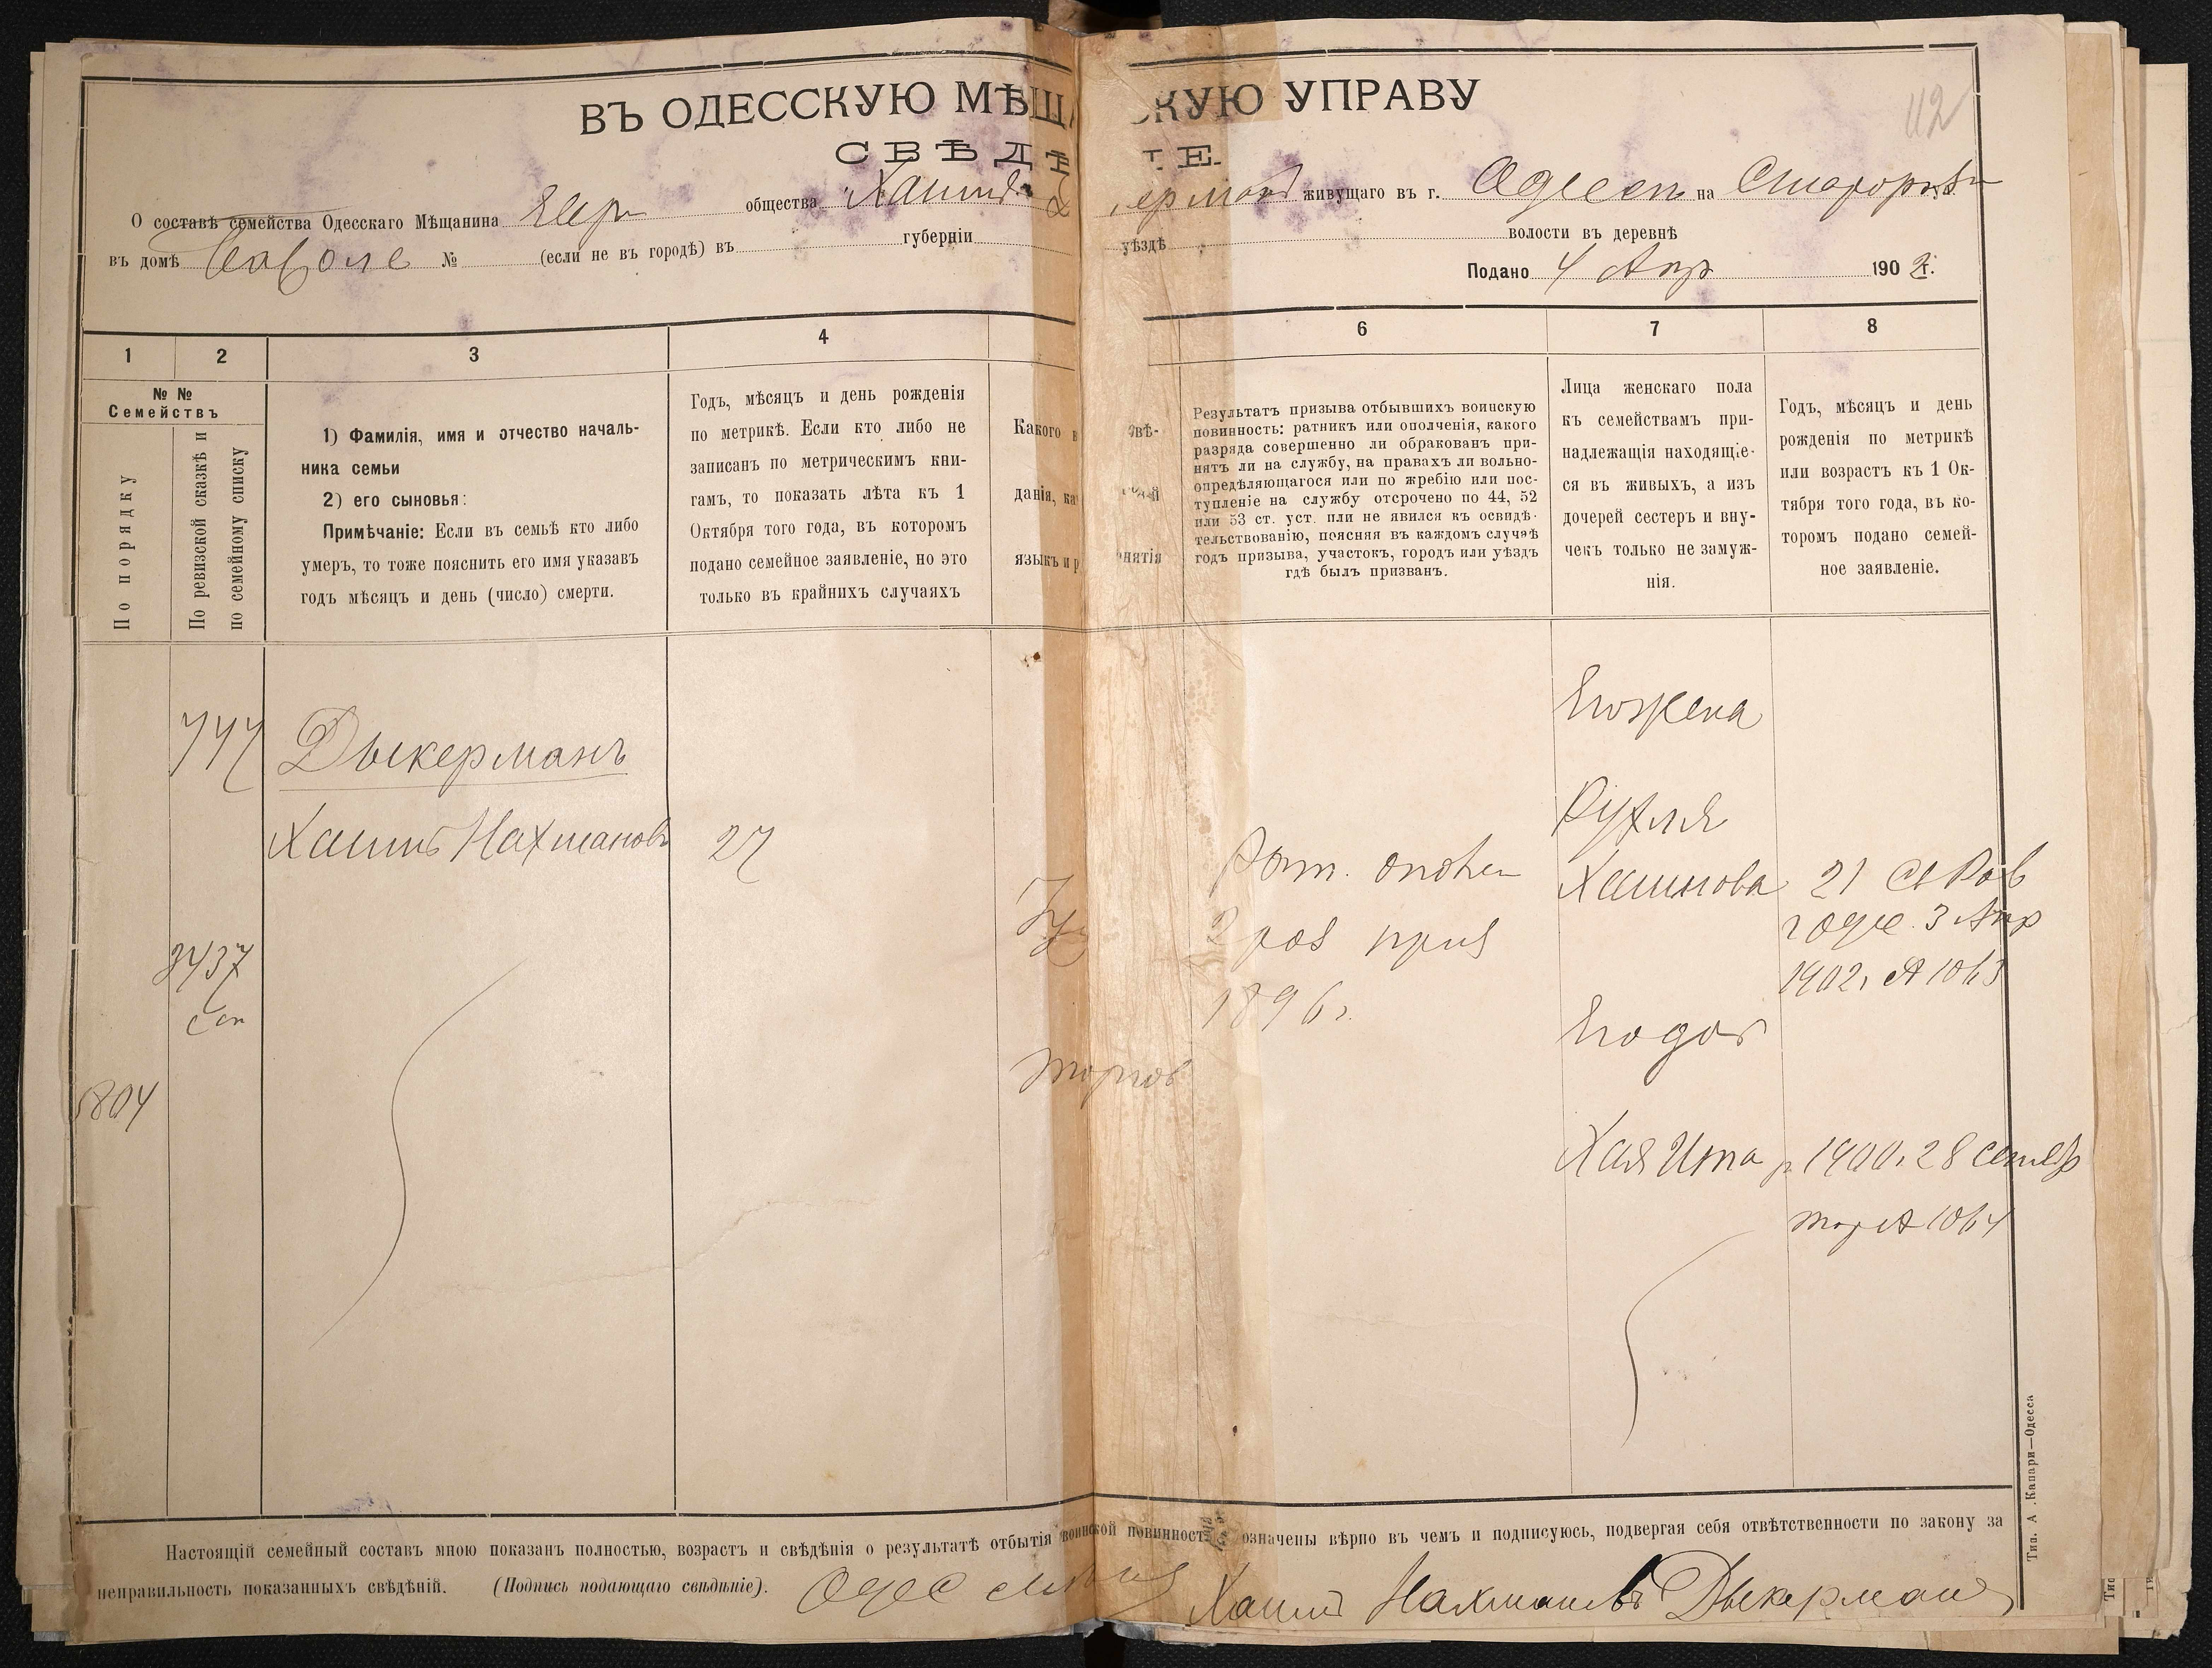 ВЪ ОДЕССКУЮ МѢЩ СКУЮ УПРАВУ
112
СВѢДѢ Е.
О составѣ семейства Одесскаго Мѣщанина Евр общества Хаимъ Д керманъ живущаго въ г. Одессѣ на
въ домѣ № (если не въ городѣ) въ губерніи уѣздѣ волости въ деревнѣ
Подано 4 Апр 1902 г.
1 2 3 4 6 7 8
№ №
Семействъ
По порядку
По ревизской сказкѣ и
по семейному списку
1) Фамилія, имя и отчество началь-
ника семьи
2) его сыновья:
Примѣчаніе: Если въ семьѣ кто либо
умеръ, то тоже пояснить его имя указавъ
годъ мѣсяцъ и день (число) смерти.
Годъ, мѣсяцъ и день рожденія
по метрикѣ. Если кто либо не
записанъ по метрическимъ кни-
гамъ, то показать лѣта къ 1
Октября того года, въ которомъ
подано семейное заявленіе, но это
только въ крайнихъ случаяхъ
Какого в
данія, ка
языкъ и р
Результатъ призыва отбывшихъ воинскую
повинность: ратникъ или ополченія, какого
разряда совершенно ли обракованъ при-
нятъ ли на службу, на правахъ ли вольно-
опредѣляющагося или по жребію или пос-
тупленіе на службу отсрочено по 44, 52
или 53 ст. уст. или не явился къ освидѣ-
тельствованію, поясняя въ каждомъ случаѣ
годъ призыва, участокъ, городъ или уѣздъ
гдѣ былъ призванъ.
Лица женскаго пола
къ семействамъ при-
надлежащія находящіе-
ся въ живыхъ, а изъ
дочерей сестеръ и вну-
чекъ только не замуж-
нія.
Годъ, мѣсяцъ и день
рожденія по метрикѣ
или возрастъ къ 1 Ок-
тября того года, въ ко-
торомъ подано семей-
ное заявленіе.
747
Дыкерманъ
Хаимъ Нахмановъ
27
3437
1804
Іуд
торгов
Рат. ополч
2 раз приз
1896 г.
Его жена
Рухля
Хаимова
21 св Рав
годе 3 Апр
1902 г. № 1063
Его доч
Хая Ита
р. 1900 г. 28 сентяб
№ 1064
Настоящій семейный составъ мною показанъ полностью, возрастъ и свѣдѣнія о результатѣ отбытія воинской повинност означены вѣрно въ чемъ и подписуюсь, подвергая себя отвѣтственности по закону за
неправильность показанныхъ свѣдѣній. (Подпись подающаго свѣдѣніе). Одес мѣщан Хаимъ Нахмановъ Дыкерманъ
Тип. А. Капари—Одесса